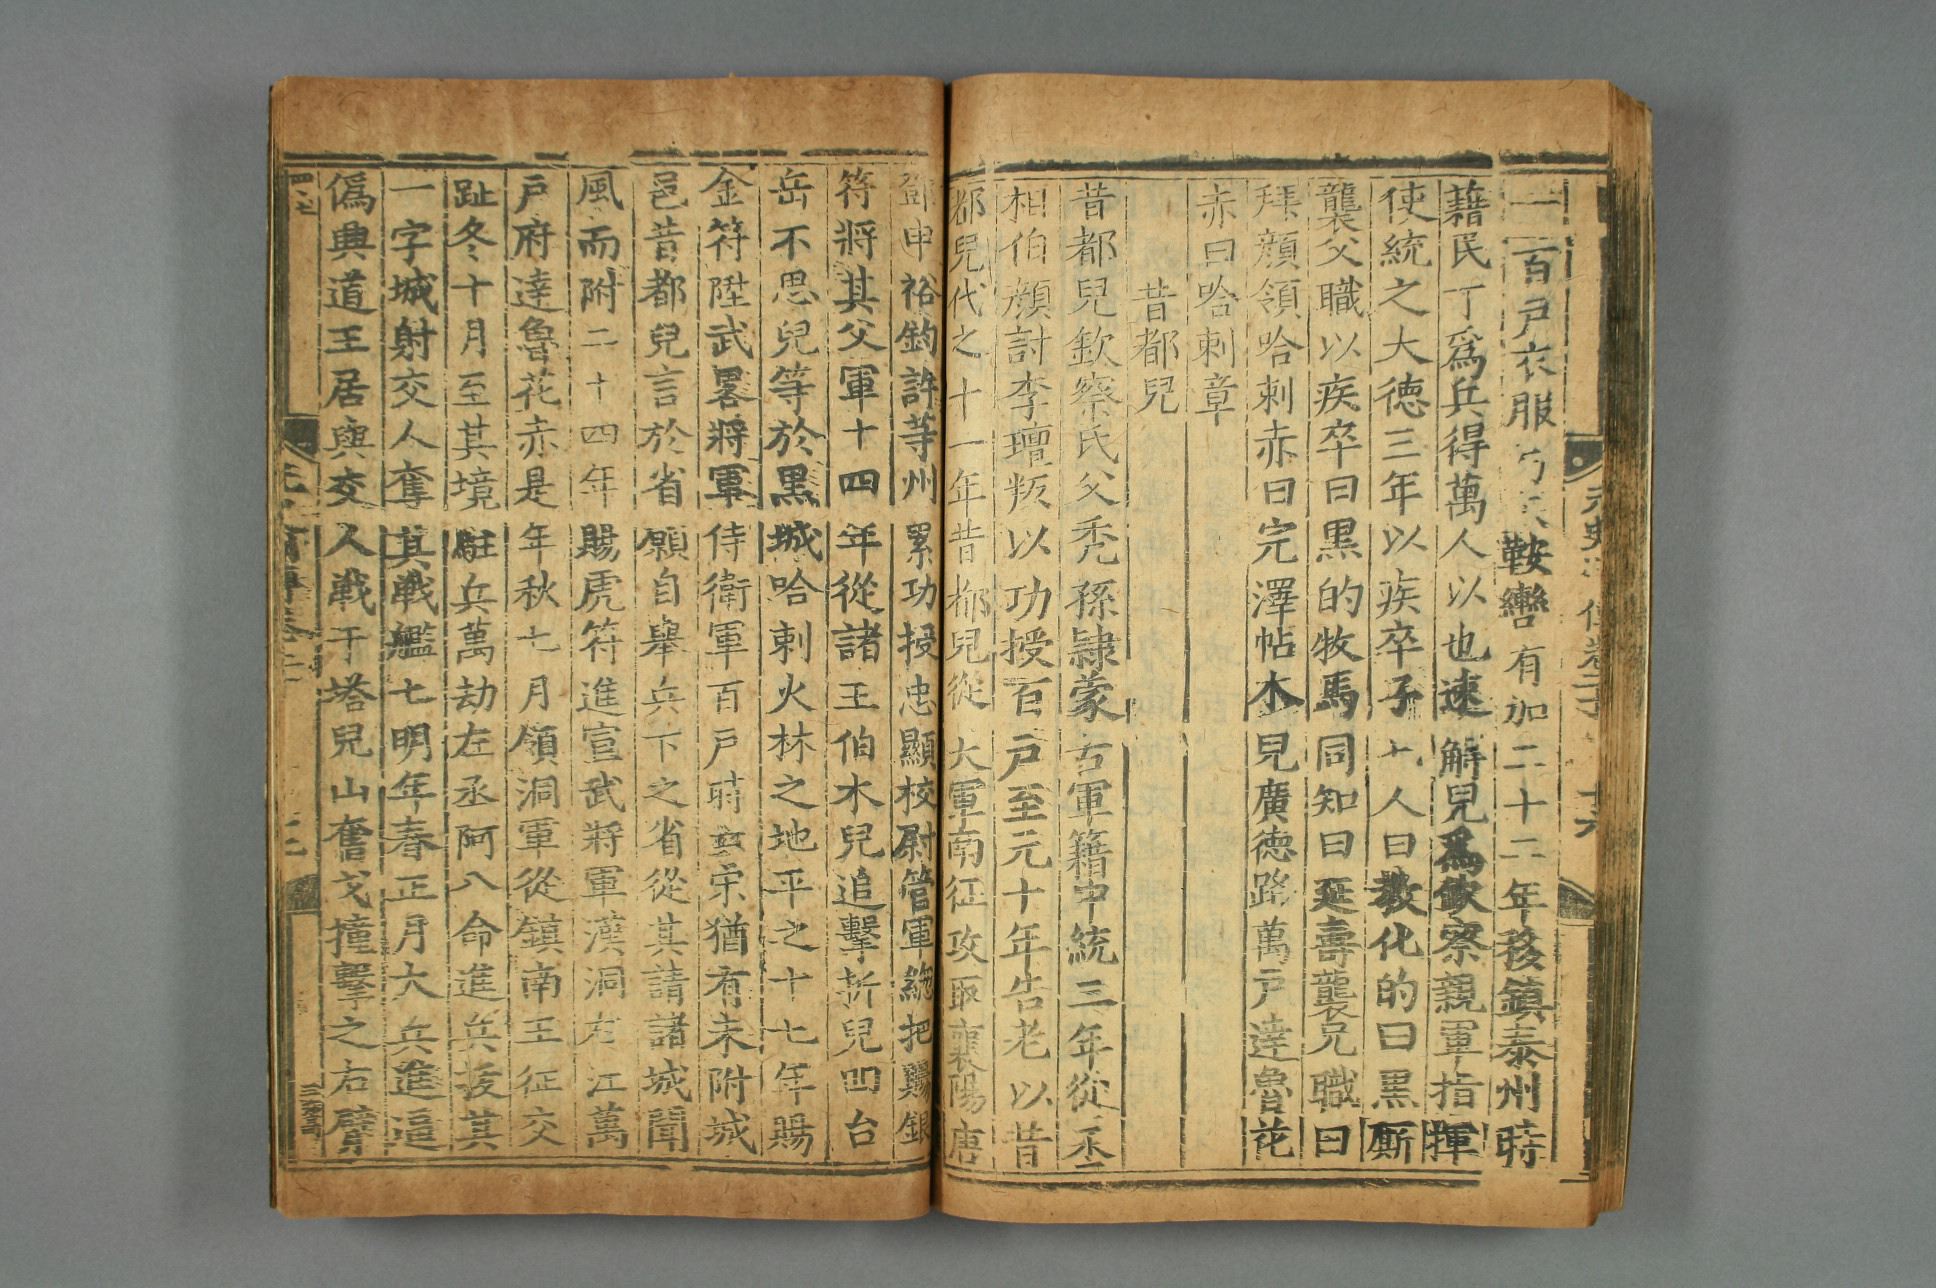 一百戶衣服弓矢鞍轡有加二十二年移鎮泰州時
藉民丁爲兵得萬人以也速解兒爲欽察親軍指揮
使統之大德三年以疾卒子七人曰教化的曰黑厮
襲父職以疾卒曰黑的牧馬同知曰延壽襲兄職曰
拜顔領哈剌赤曰完澤帖木兒廣德路萬戶達魯花
赤曰哈剌章
昔都兒
昔都兒欽察氏父禿孫隷蒙古軍籍中統三年從丞
相伯顔討李璮叛以功授百戶至元十年告老以昔
都兒代之十一年昔都兒從大軍南征攻取襄陽唐
鄧申裕鈞許等州累功授忠顯校尉管軍緫把賜銀
符將其父軍十四年從諸王伯木兒追擊折兒凹台
岳不思兒等於黑城哈剌火林之地平之十七年賜
金符陞武畧將軍侍衛軍百戶時亡宋猶有未附城
邑昔都兒言於省願自舉兵下之省從其請諸城聞
風而附二十四年賜虎符進宣武將軍漢洞右江萬
戶府達魯花赤是年秋七月領洞軍從鎮南王征交
趾冬十月至其境駐兵萬劫左丞阿八命進兵拔其
一字城射交人奪其戰艦七明年春正月大兵進逼
偽興道王居與交人戰于塔兒山奮戈撞擊之右臂